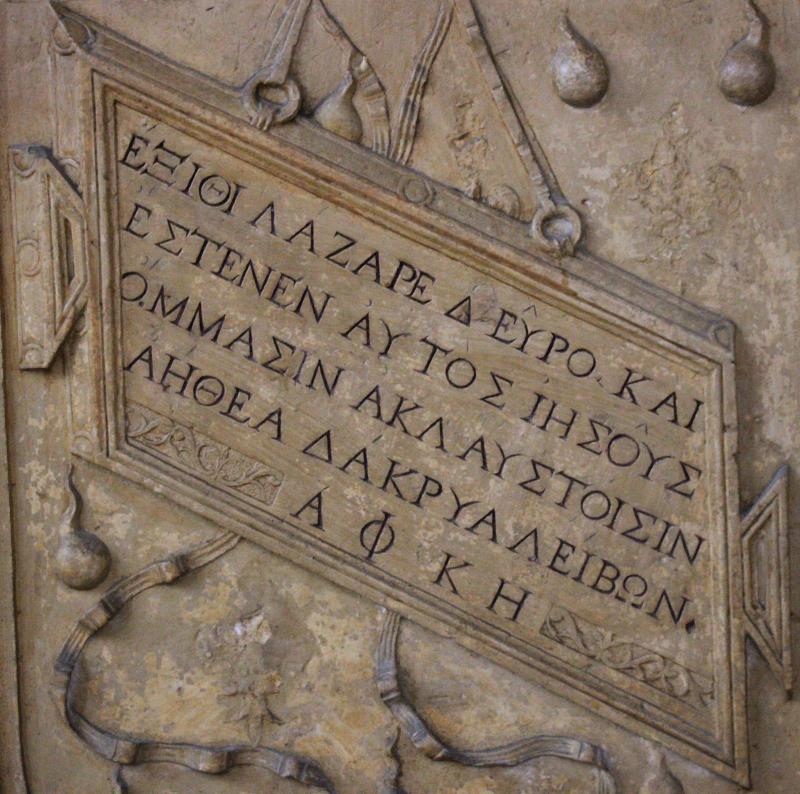 ἘΞΙΘΙ ΛΑΖΑΡΕ ΔΕΥ͂ΡΟ. ΚΑΙ
ΕΣΤΕΝΕΝ ΑΥΤΟΣ ΙΗΣΟΥ͂Σ
ὈΜΜΑΣΙΝ ΑΚΛΑΥΣΤΟΙΣΙΝ
ΑΗΘΕΑ ΔΑΚΡΥΑ ΛΕΙΒΩΝ.
Α Φ Κ Η